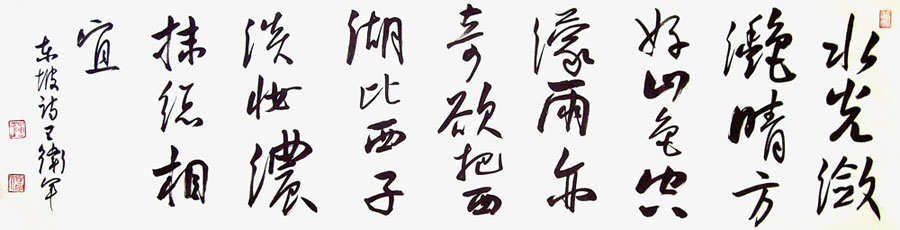 水光潋
滟晴方
好山色空
濛雨亦
奇欲把西
湖比西子
淡妆濃
抹總相
宜
东坡诗 王衛军